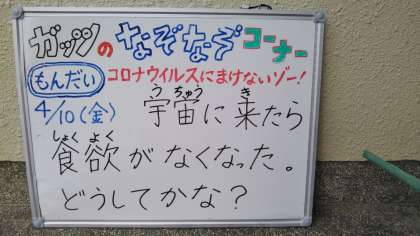 ガッツのなぞなぞコーナー
もんだい コロナウイルスにまけないゾー!
4/10(金) 宇宙に来たら
食欲がなくなった。
どうしてかな?